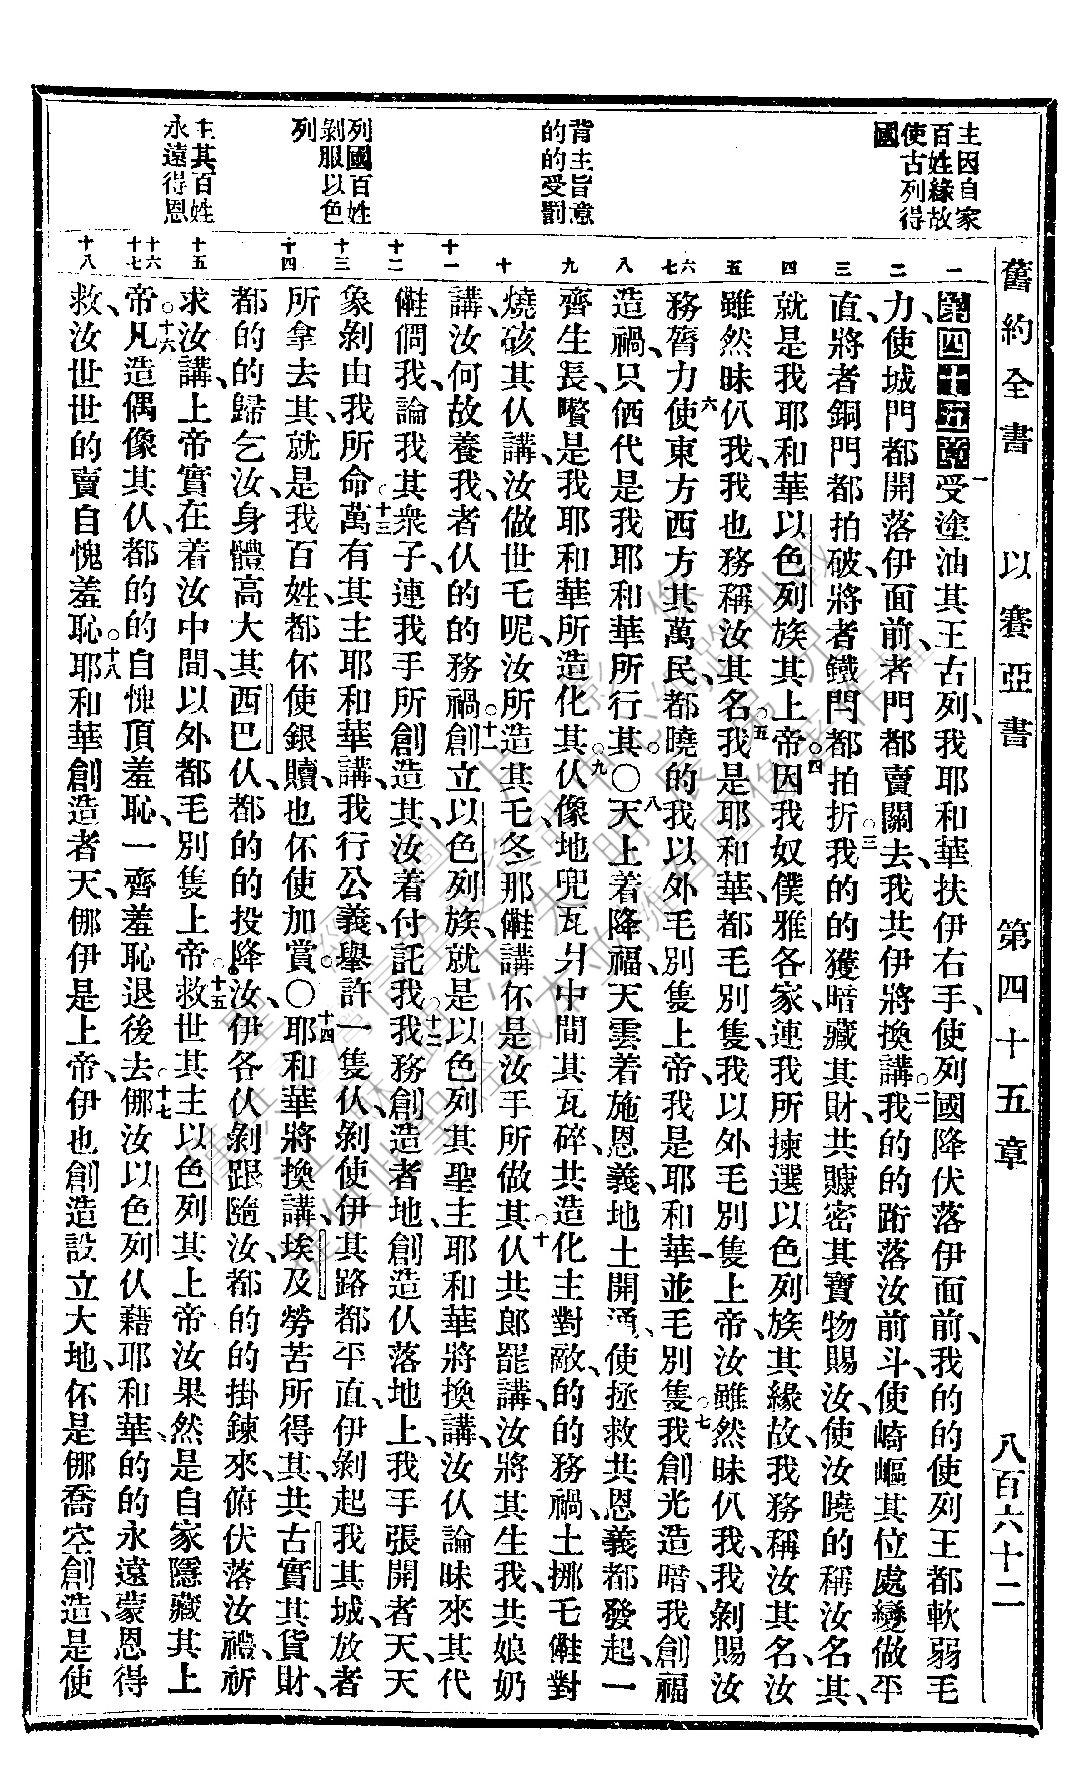 舊約全書 以賽亞書 第四十五章 八百六十二
主因自家
百姓緣故
使古列得
國
背主旨意
的的受罰
列國百姓
剝服以色
列
主其百姓
永遠得恩
一
二
三
四
五
六
七
八
九
十
十一
十二
十三
十四
十五
十六
十七
十八
第四十五章一受塗油其王古列、我耶和華扶伊右手、使列國降伏落伊面前、我的的使列王都軟弱毛
力、使城門都開落伊面前、者門都賣關去、我共伊將換講、○二我的的跨落汝前斗、使崎嶇其位處變做平
直、將者銅門都拍破、將者鐵閂都拍折、○三我的的獲暗藏其財、共贜密其寶物賜汝、使汝曉的稱汝名其、
就是我耶和華以色列族其上帝、○四因我奴僕雅各家、連我所揀選以色列族其緣故、我務稱汝其名、汝
雖然昧仈我、我也務稱汝其名、○五我是耶和華、都毛別隻、我以外毛別隻上帝、汝雖然昧仈我、我剝賜汝
務膂力、六使東方西方其萬民、都曉的我以外毛別隻上帝、我是耶和華、並毛別隻、○七我創光造暗、我創福
造禍、只𠆧代是我耶和華所行其。○八天上着降福、天雲着施恩義、地土開通、使拯救共恩義都發起、一
齊生長、嚽是我耶和華所造化其、○九仈像地兜瓦爿中間其瓦碎、共造化主對敵、的的務禍、土挪乇俥對
燒硋其仈講、汝做世乇呢、汝所造其毛冬那俥講、伓是汝手所做其、○十仈共郎罷講、汝將其生我、共娘奶
講、汝何故養我、者仈的的務禍、○十一創立以色列族、就是以色列其聖主耶和華將換講、汝仈論昧來其代
俥問我、論我其衆子連我手所創造其、汝着付託我、○十二我務創造者地、創造仈落地上、我手張開者天、天
象剝由我所命、○十三萬有其主耶和華講、我行公義、舉許一隻仈、剝使伊其路都平直、伊剝起我其城、放者
所拿去其、就是我百姓、都伓使銀贖、也伓使加賞。○十四耶和華將換講、埃及勞苦所得其、共古實其貨財、
都的的歸乞汝、身體高大其西巴仈、都的的投降汝、伊各仈剝跟隨汝、都的的掛鍊來、俯伏落汝禮祈
求汝講、上帝實在着汝中間、以外都毛別隻上帝、○十五救世其主以色列其上帝、汝果然是自家隱藏其上
帝、○十六凡造偶像其仈、都的的自愧頂羞恥、一齊羞恥退後去、○十七㑚汝以色列仈、藉耶和華的的永遠蒙恩得
救、汝世世的賣自愧羞恥、○十八耶和華創造者天、㑚伊是上帝、伊也創造設立大地、伓是㑚喬空創造、是使